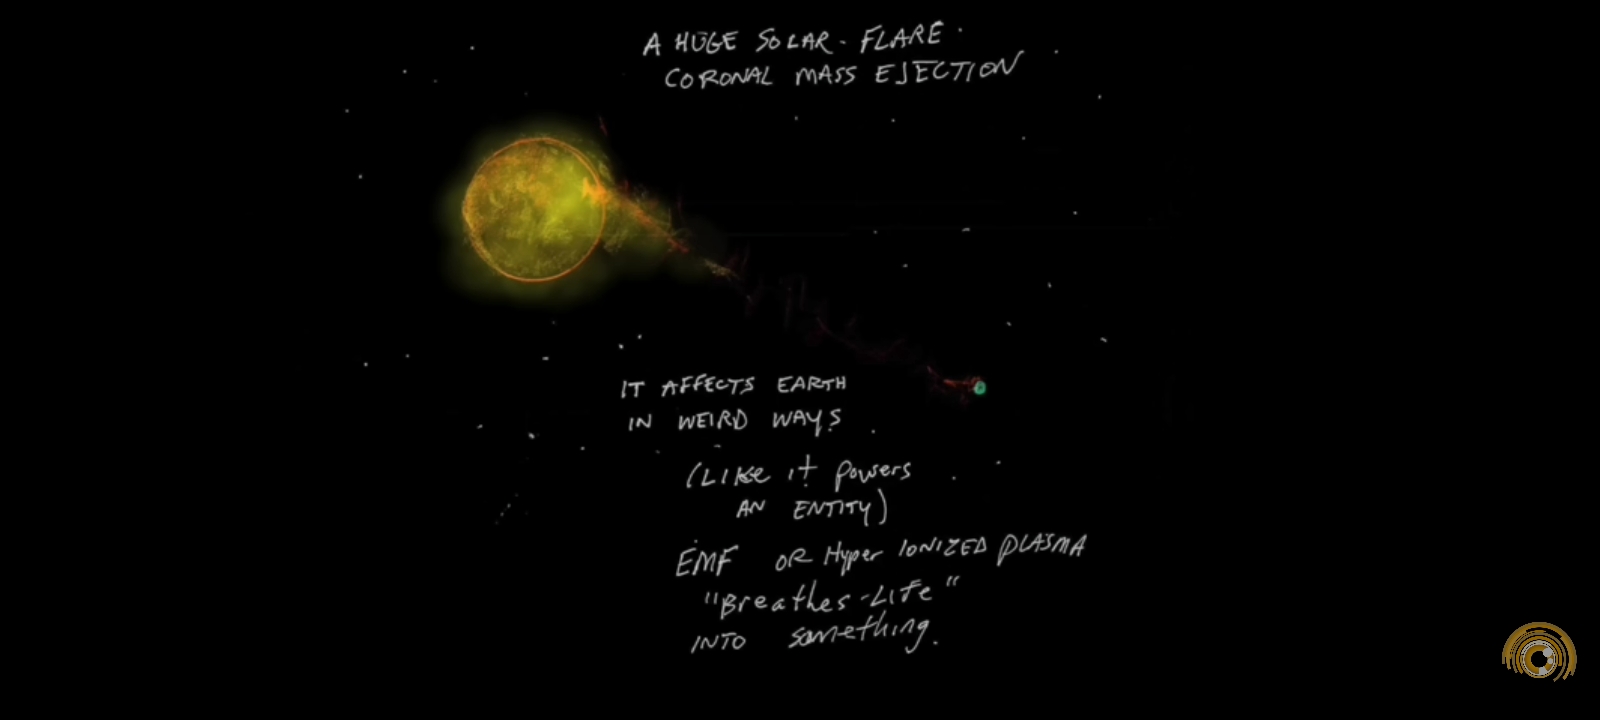 A HUGE SOLAR-FLARE.
CORONAL MASS EJECTION
IT AFFECTS EARTH
IN WEIRD WAYS
(LIKE IT POWERS
AN ENTITY)
EMF OR Hyper IONIZED PLASMA
"Breathes-LIFE"
INTO something.